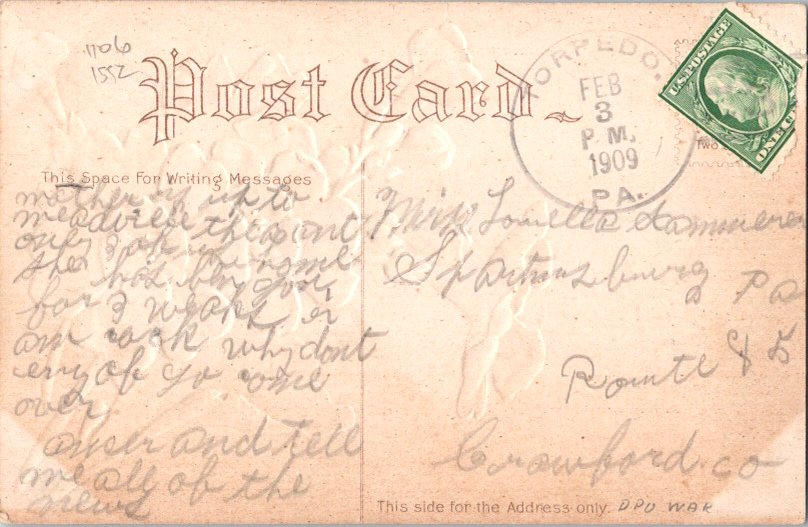 1106
1552
Post Card
TORPEDO.
FEB
3
P.M.
1909
PA.
U.S. POSTAGE
ONE CENT
Two
This Space For Writing Messages
mother is up to
meadville the
only
she has ben gone
for 3 weaks
am why dont
eny of yo come
over
anser and tell
me all of the
news
Miss Louella Kammerer
Spartansburg Pa
Route
Crawford. co
This side for the Address only.
DPU WAR